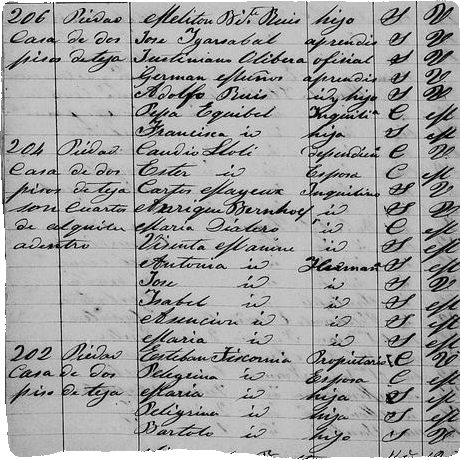 206 Piedad Meliton Bⁿ Ruis hijo S V
Casa de dos Jose Ygarsabal aprendis S V
pisos de teja Justiniano Olibera oficial S V
German Muños aprendis S V
Adolfo Ruis id y hijo S V
Pepa Equibel Inquili C M
Francisca id hija S M
204 Piedad Candio Stoli Dependien C V
Casa de dos Ester id Esposa C M
pisos de teja Carlos Mayeux Inquilino S V
son Cuartos Enrique Bernhof id S V
de alquiler Maria id C M
adentro id S M
Antonia id Herman S M
Jose id id S V
Isabel id id S M
Asencion id id S M
Maria id id S M
202 Piedad Esteban Fisconia Propietario C V
Casa de dos Peligrina id Esposa C M
piso de teja Maria id hija S M
Peligrina id hija S M
Bartolo id hijo S V